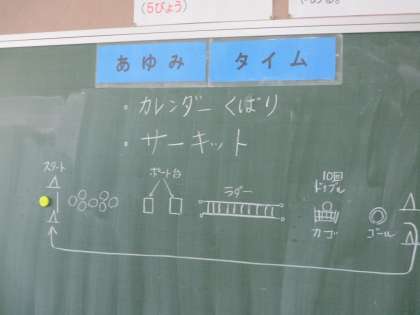 (5びょう)
あゆみ タイム
・カレンダーくばり
・サーキット
スタート
ボート台
ラダー
10回
ドリブル
カゴ
ゴール